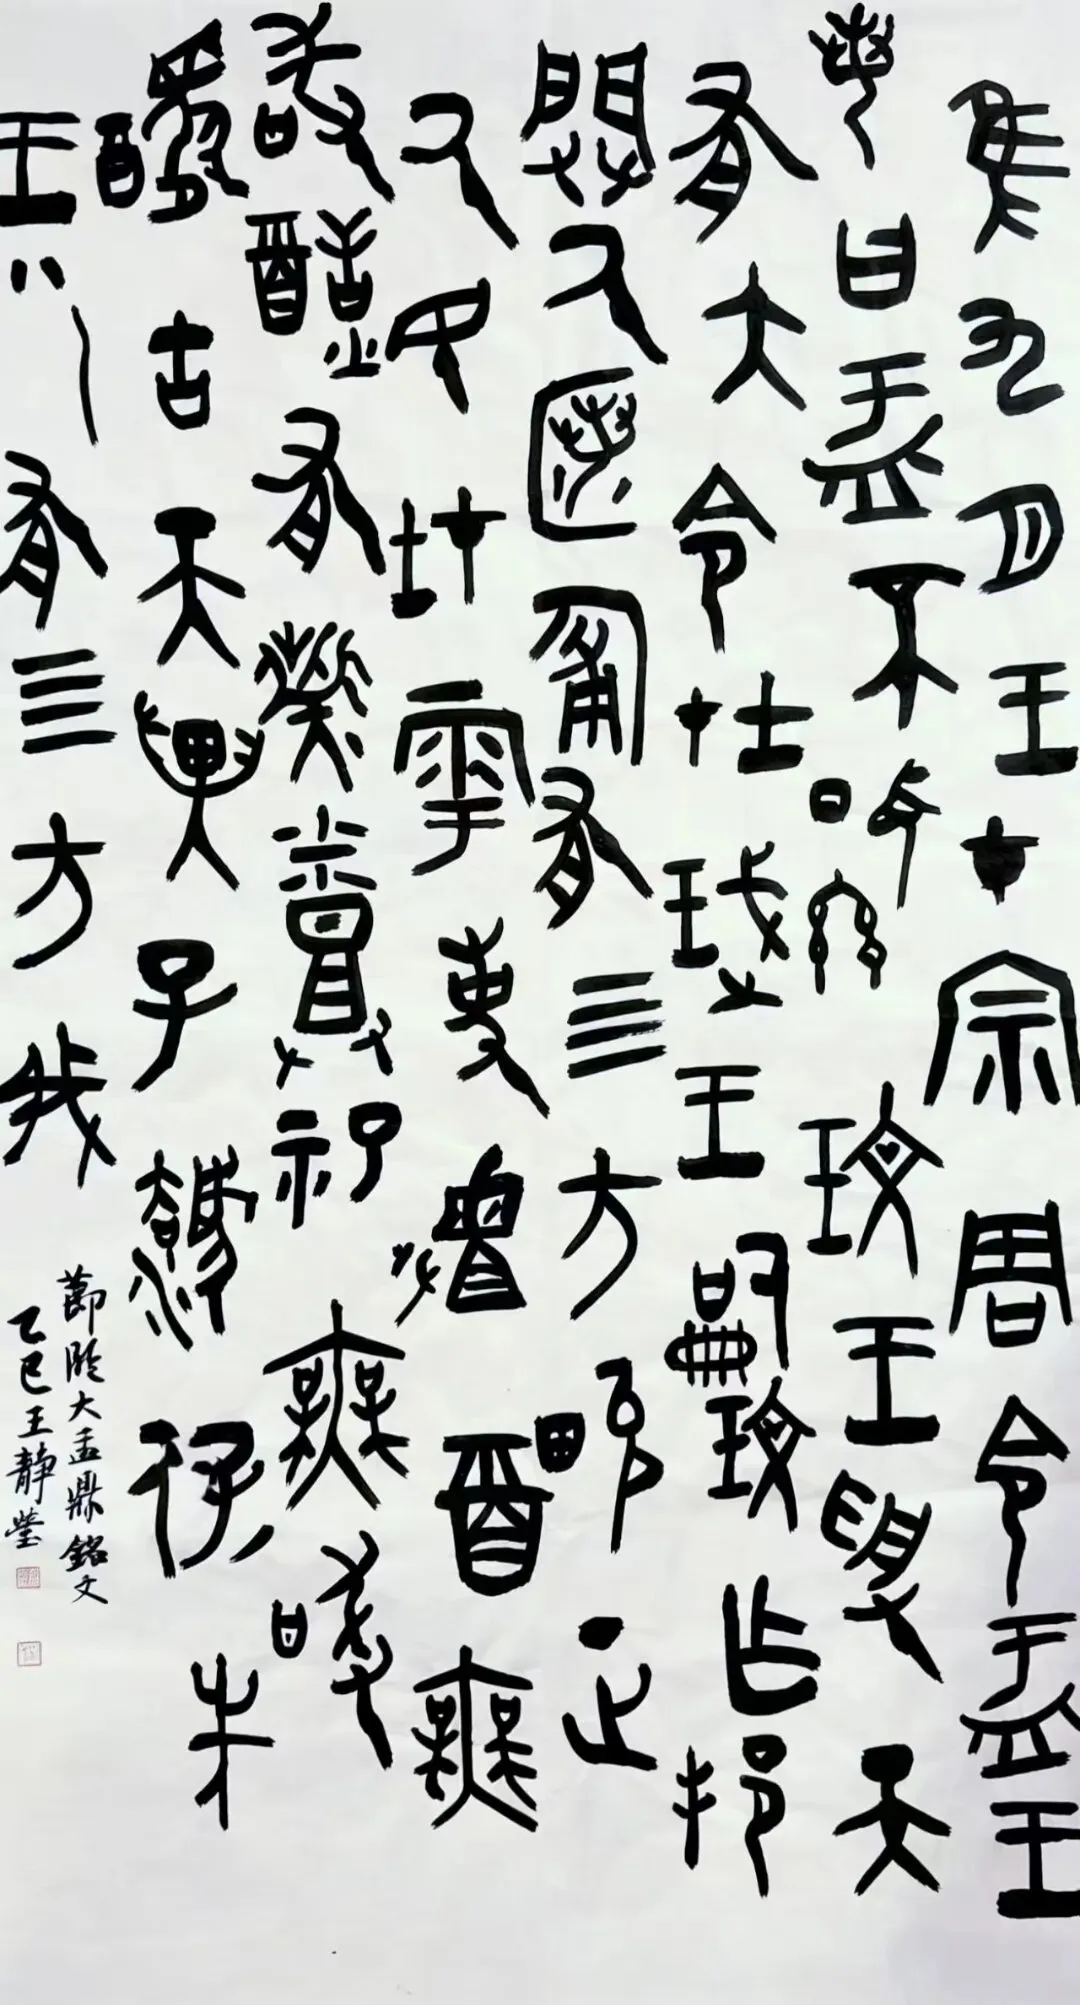 隹九月王才宗周令盂王
若曰盂不顯玟王受天
有大令在珷王嗣玟乍邦
闢厥匿匍有四方畯正
厥民在雩事𠭯酉無
敢酖有柴烝祀無敢
醻古天異子灋保先
王有四方我
節臨大盂鼎銘文
乙巳王靜瑩